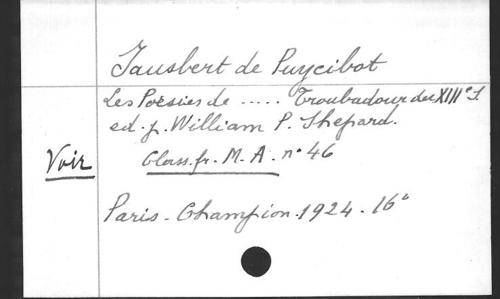 Jausbert de Puycibot
Les Poésies de ..... Troubadour du XIIIe S.
ed. p. William P. Shepard.
Voir Class. fr. M. A. n° 46
Paris - Champion - 1924 - 16°